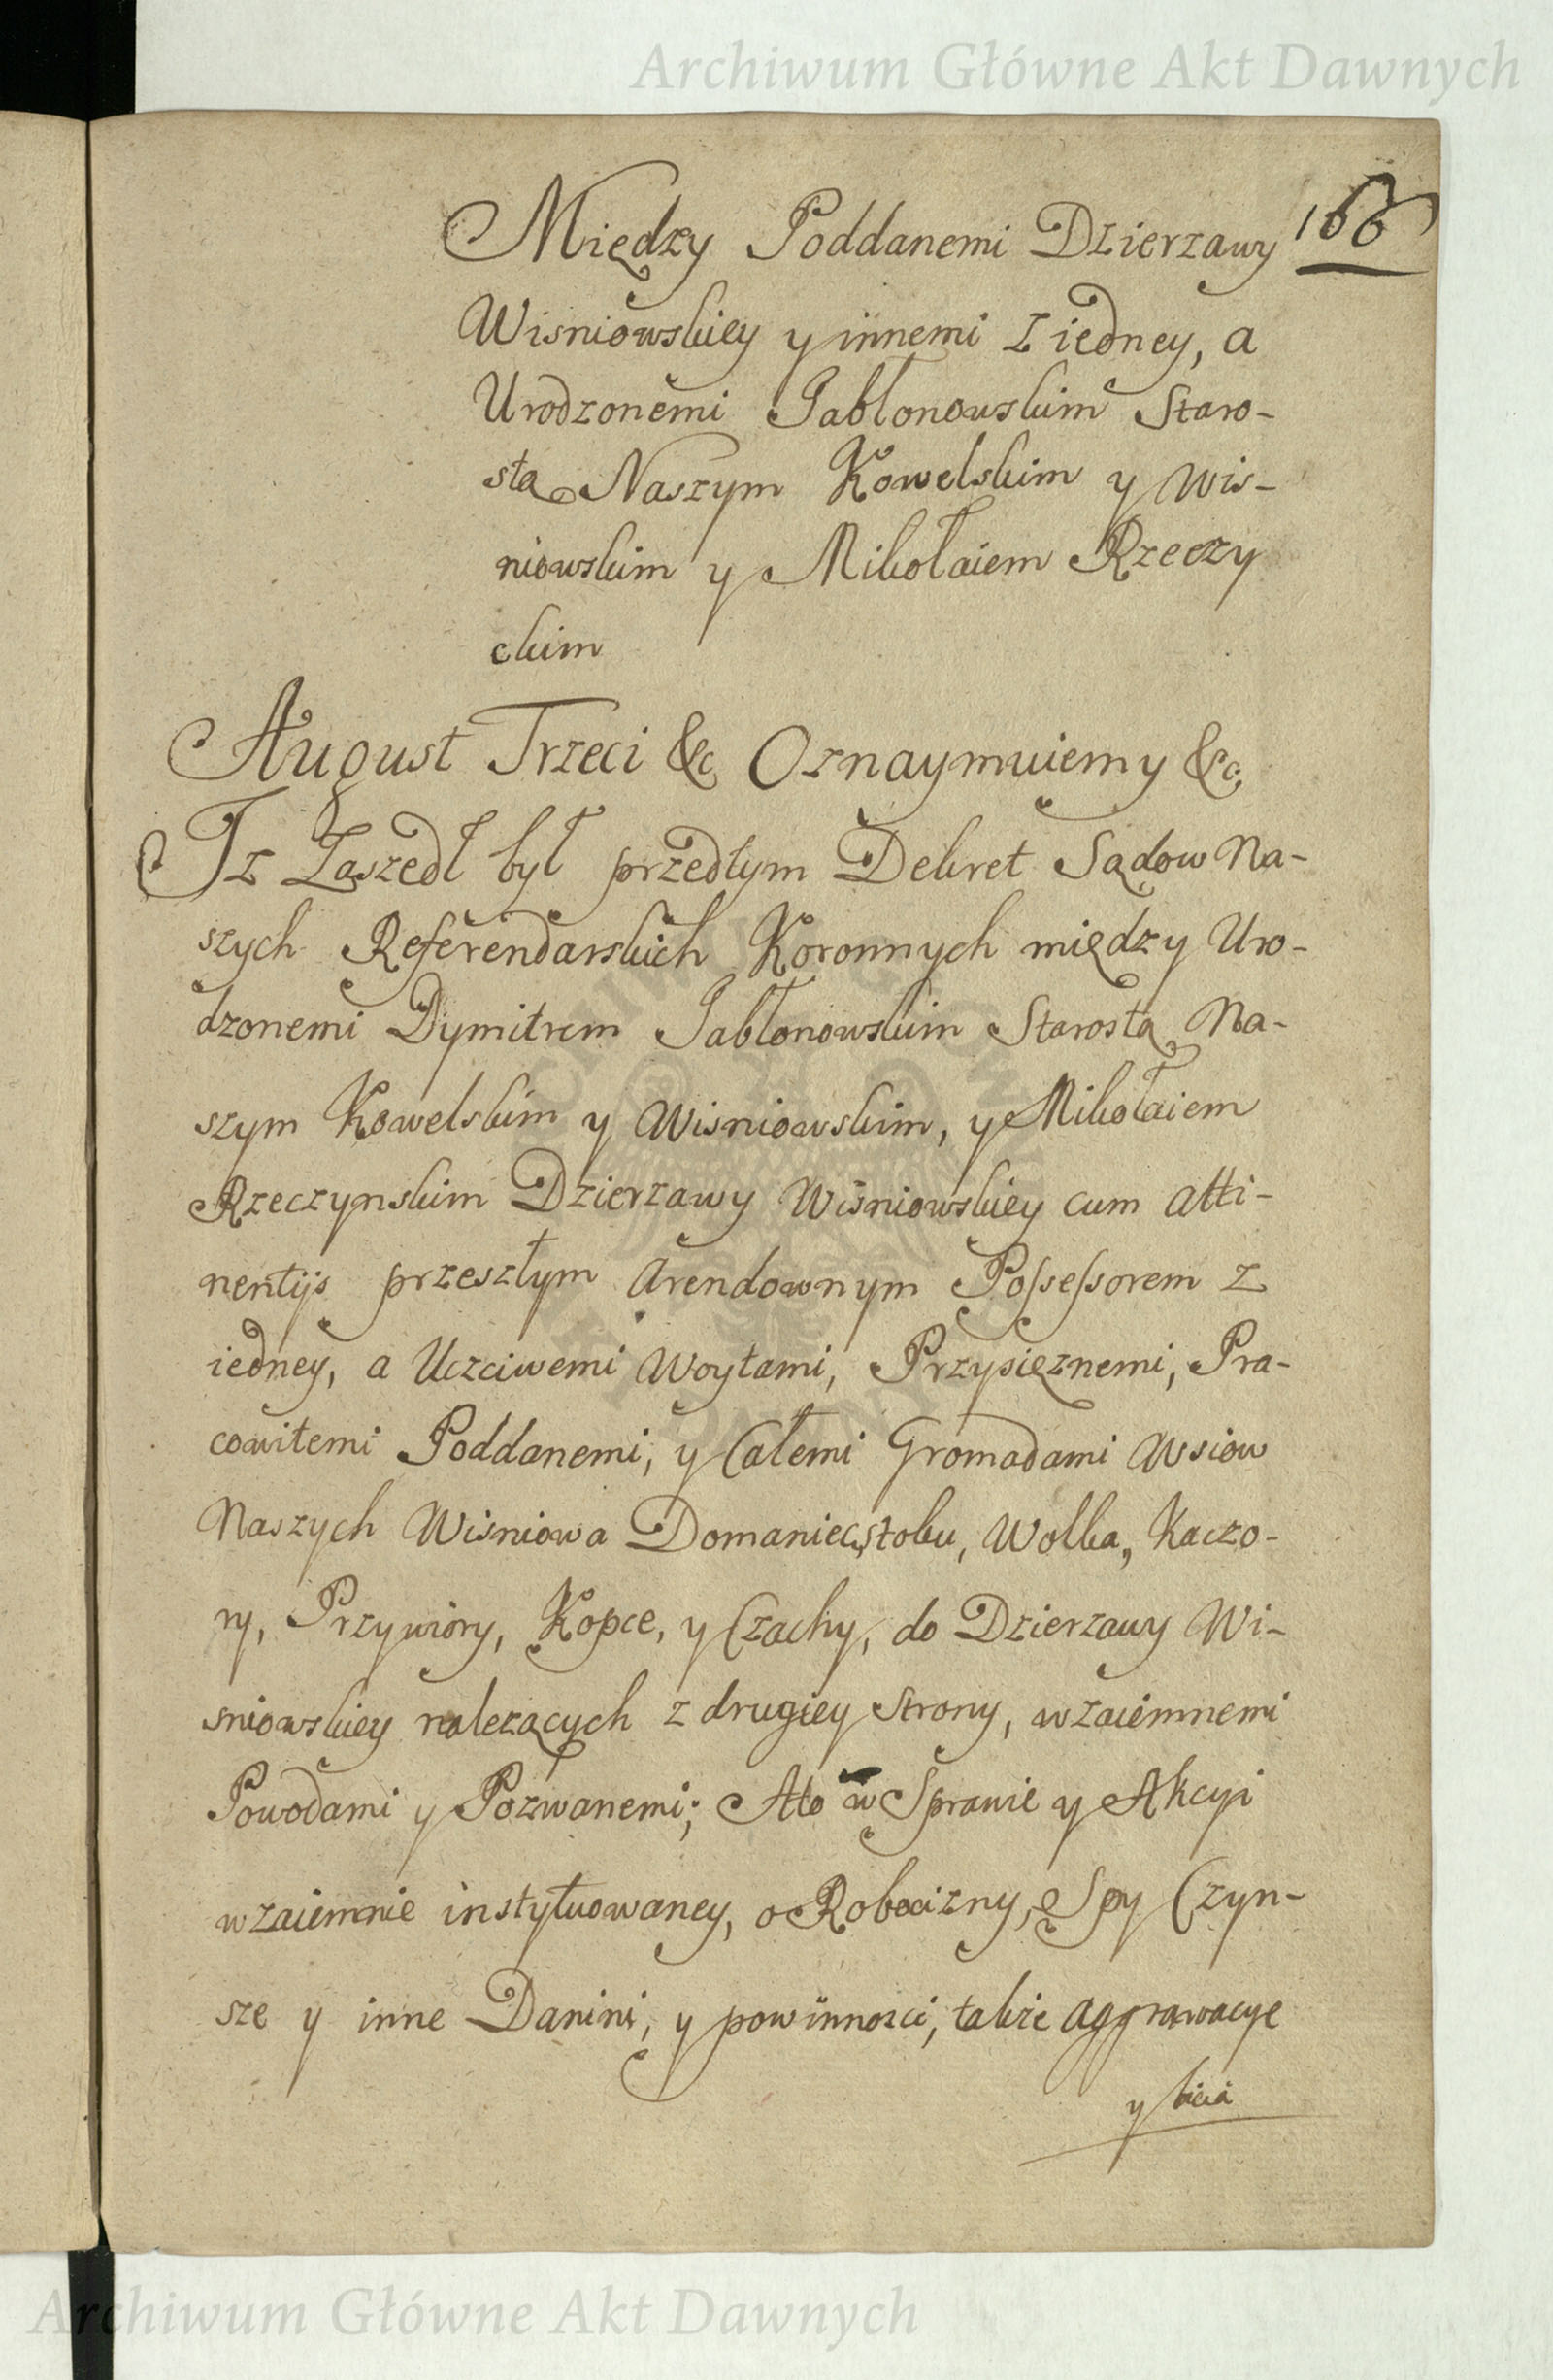 Archiwum Główne Akt Dawnych
166
Między Poddanemi Dzierzawy
Wisniowskiey y innemi z iedney, a
Urodzonemi Jabłonowskim Staro-
stą Naszym Kowelskim y Wis-
niowskim y Mikołaiem Rzeczy
ckim
August Trzeci &c Oznaymuiemy &c
Iz Zaszedł był przedtym Dekret Sądow Na-
szych Referendarskich Koronnych między Uro-
dzonemi Dymitrem Jabłonowskim Starostą Na-
szym Kowelskim y Wisniowskim, y Mikołaiem
Rzeczynskim Dzierzawy Wisniowskiey cum atti-
nentijs przeszłym Arendownym Possessorem z
iedney, a Uczciwemi Woytami, Przysięznemi, Pra-
cowitemi Poddanemi, y Całemi Gromadami Wsiow
Naszych Wisniowa Domaniec, stoku, Wolka, Kaczo-
ry, Przywiory, Kopce, y Czachy, do Dzierzawy Wi-
sniowskiey nalezących z drugiey Strony, wzaiemnemi
Powodami y Pozwanemi; Ato w Sprawie y Akcyi
wzaiemnie instytuowaney, o Robocizny, Spy Czyn-
sze y inne Danini, y powinnosci, takze aggrawacye
y bicia
Archiwum Główne Akt Dawnych